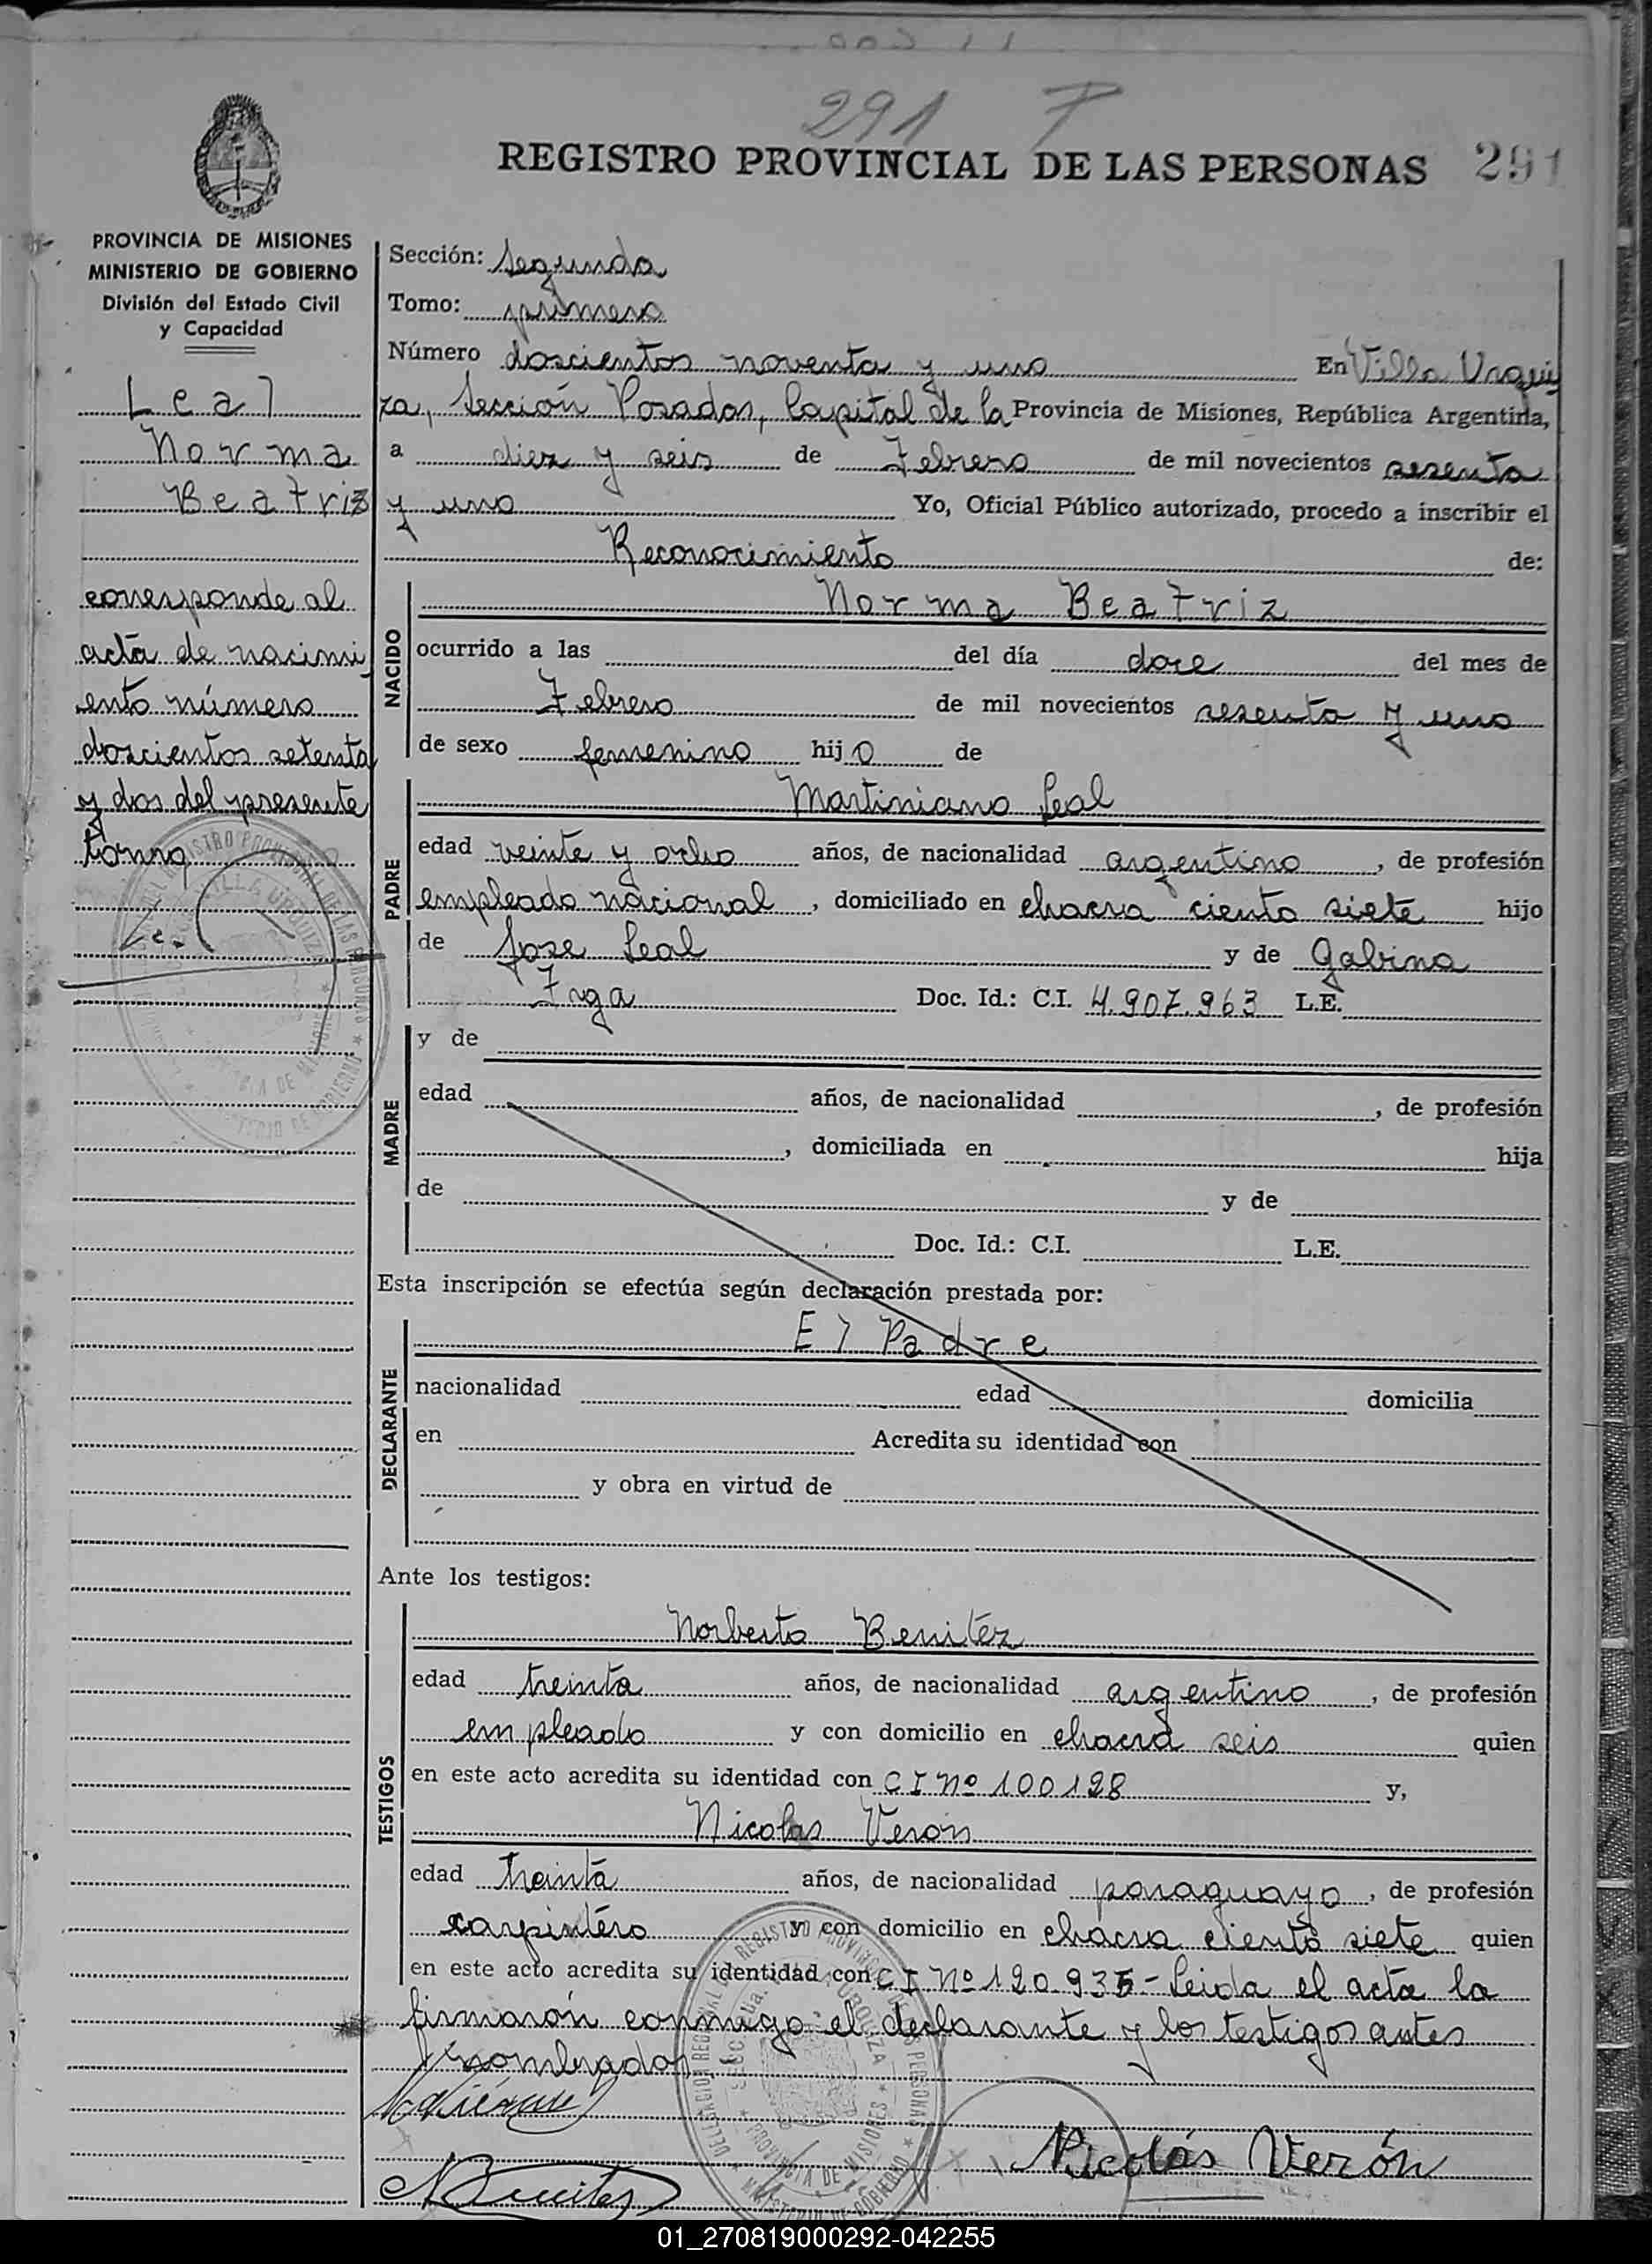 291 F
REGISTRO PROVINCIAL DE LAS PERSONAS 291
PROVINCIA DE MISIONES
MINISTERIO DE GOBIERNO
División del Estado Civil
y Capacidad
Leal
Norma
Beatriz
corresponde al
acta de nacimi
ento número
doscientos setenta
y dos del presente
tomo
Sección: Segunda
Tomo: primero
Número doscientos noventa y uno En Villa Urqui
za, Sección Posadas, Capital de la Provincia de Misiones, República Argentina,
a diez y seis de Febrero de mil novecientos sesenta
y uno Yo, Oficial Público autorizado, procedo a inscribir el
Reconocimiento de:
NACIDO
Norma Beatriz
ocurrido a las del día doce del mes de
Febrero de mil novecientos sesenta y uno
de sexo femenino hij o de
PADRE
Martiniano Leal
edad veinte y ocho años, de nacionalidad argentino, de profesión
empleado nacional, domiciliado en chacra ciento siete hijo
de Jose Leal y de Gabina
Doc. Id.: C.I. 4.907.963 L.E.
MADRE
y de
edad años, de nacionalidad , de profesión
, domiciliada en hija
de y de
Doc. Id.: C.I. L.E.
Esta inscripción se efectúa según declaración prestada por:
DECLARANTE
El Padre
nacionalidad edad domicilia
en Acredita su identidad con
y obra en virtud de
Ante los testigos:
TESTIGOS
Norberto Benitéz
edad treinta años, de nacionalidad argentino, de profesión
empleado y con domicilio en chacra seis quien
en este acto acredita su identidad con C I Nº 100128 y,
Nicolas Veron
edad treinta años, de nacionalidad paraguayo, de profesión
carpintero y con domicilio en chacra ciento siete quien
en este acto acredita su identidad con C I Nº 120.935- Leida el acta la
firmarón conmigo el declarante y los testigos antes
nombrados
N Benitez
Nicolás Verón
01_270819000292-042255